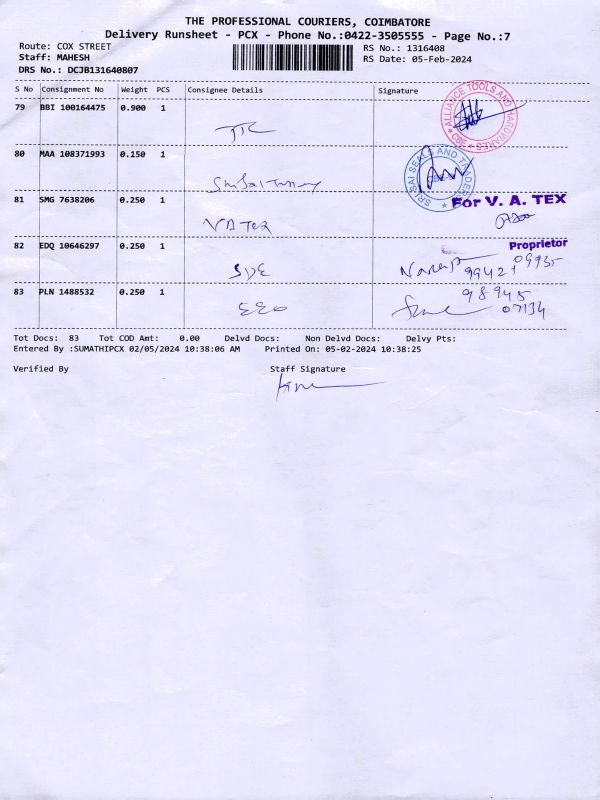 THE PROFESSIONAL COURIERS, COIMBATORE
Delivery Runsheet - PCX - Phone No.:0422-3505555 - Page No.:7
Route: COX STREET
RS No.: 1316408
Staff: MAHESH
RS Date: 05-Feb-2024
DRS No.: DCJB131640807
S No Consignment No Weight PCS Consignee Details Signature
79 BBI 100164475 0.900 1
ALLIANCE TOOLS AND HARDWARES
CBE
80 MAA 108371993 0.150 1
SRI SAI SEALS AND TRADERS
81 SMG 7638206 0.250 1
For V. A. TEX
VA Tex
Proprietor
82 EDQ 10646297 0.250 1
99421 09935
83 PLN 1488532 0.250 1
98945
07134
Tot Docs: 83 Tot COD Amt: 0.00 Delvd Docs: Non Delvd Docs: Delvy Pts:
Entered By :SUMATHIPCX 02/05/2024 10:38:06 AM Printed On: 05-02-2024 10:38:25
Verified By Staff Signature